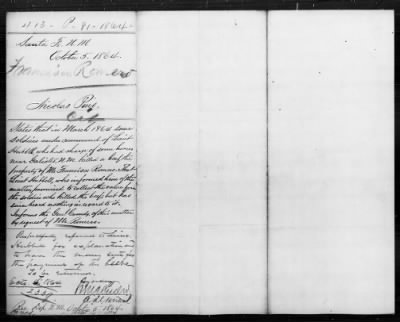 1113 - P. 91 - 1864
Santa Fe N.M.
Octo 3, 1864.
Francisco Romero
Nicolas Pino
States that in March 1864 some
soldiers under command of Lieut
Hubbell, who had charge of some horses
near Galisteo N.M. killed a beef the
property of Mr. Francisco Romero, that
Lieut Hubbell, who informed him of the
matter, promised to collect the value from
the soldier who killed the beef, but has
since heard nothing in regard to it.
Informs the Genl Comdg of this matter
by request of Mr. Romero.
Respectfully referred to Lieut
Hubbell for explanation and
to have the money
the payment of the
To be returned.
Octo 3, 1864
Rec. Dep. N.M. Octo 3 1864.